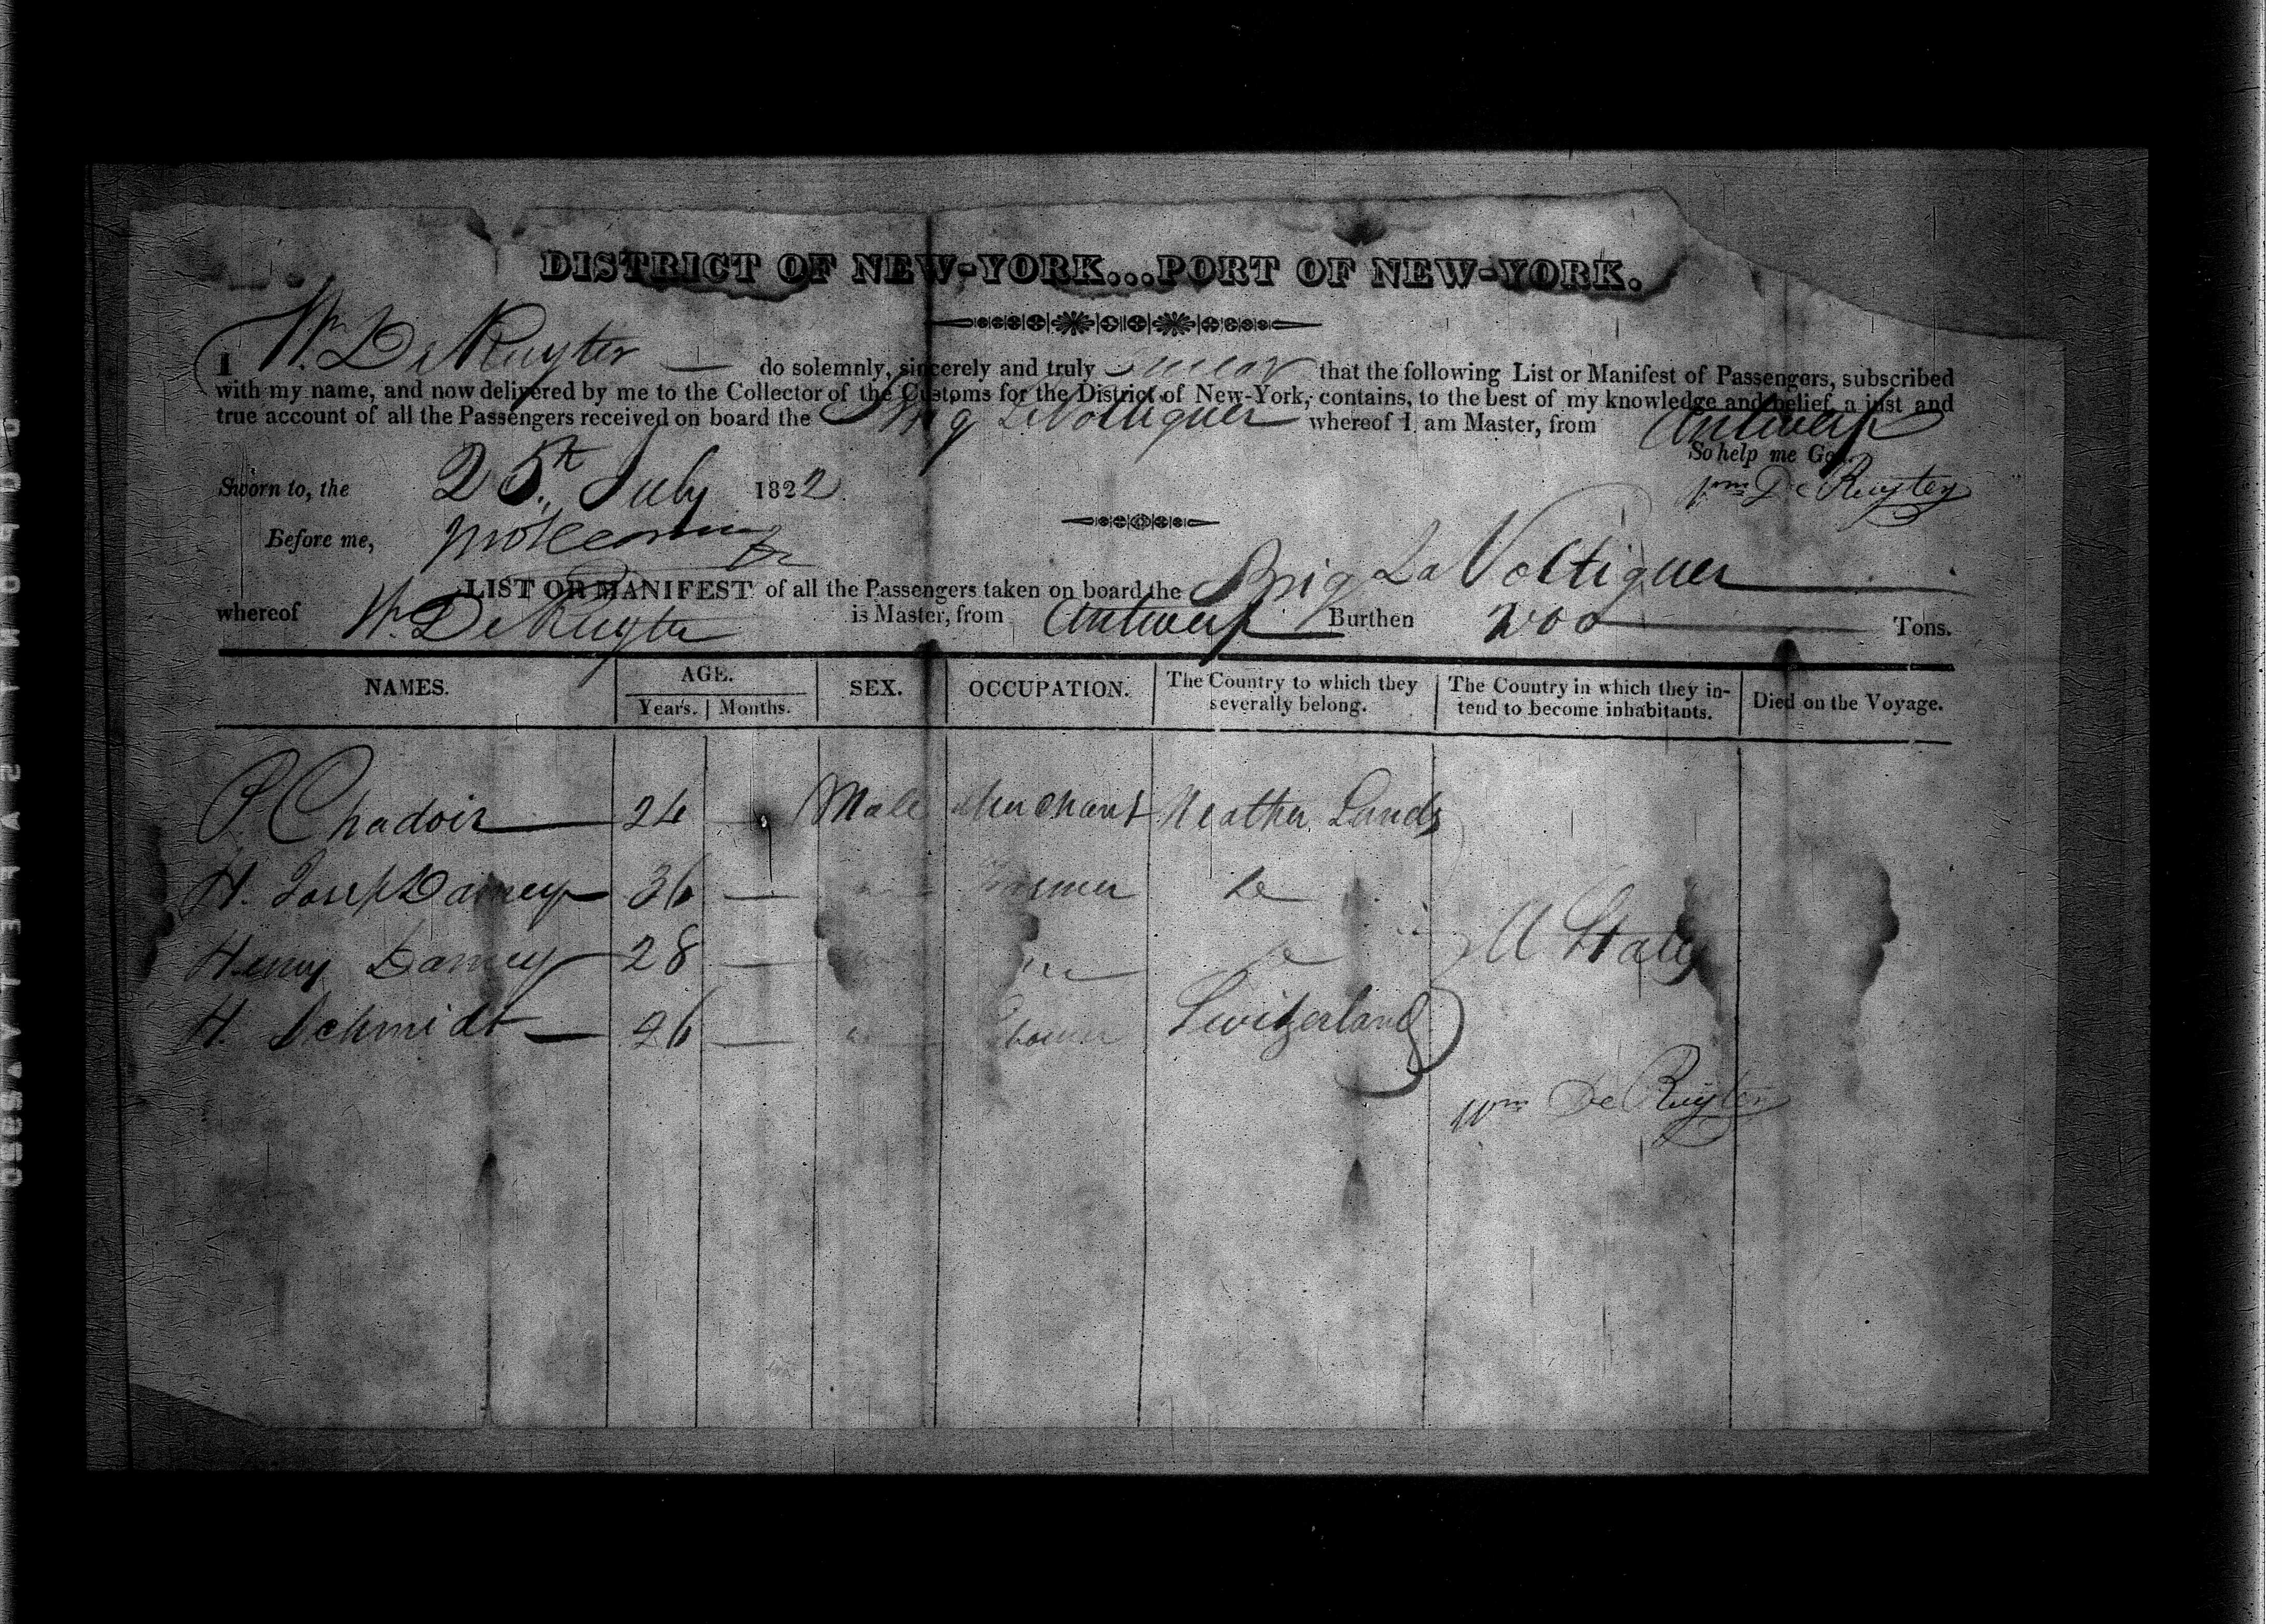 DISTRICT OF NEW-YORK...PORT OF NEW-YORK.
I Wm. De Ruyter — do solemnly, sincerely and truly swear that the following List or Manifest of Passengers, subscribed
with my name, and now delivered by me to the Collector of the Customs for the District of New-York, contains, to the best of my knowledge and belief, a just and
true account of all the Passengers received on board the Brig Le Voltiguer whereof I am Master, from Antwerp
So help me God.
Sworn to, the 25th July 1822
Wm De Ruyter
Before me,
LIST OR MANIFEST of all the Passengers taken on board the Brig La Voltiguer
whereof Wm. De Ruyter is Master, from Antwerp Burthen 200 Tons.
NAMES. AGE. SEX. OCCUPATION. The Country to which they severally belong. The Country in which they intend to become inhabitants. Died on the Voyage.
Years. Months.
P. Chadoir 24 — Male Merchant Neather Lands
H. Joseph Damey 36 — " Farmer Do
Henry Damey 28 — " Do
U States
H. Schmidt 26 — " Switzerland
Wm De Ruyter